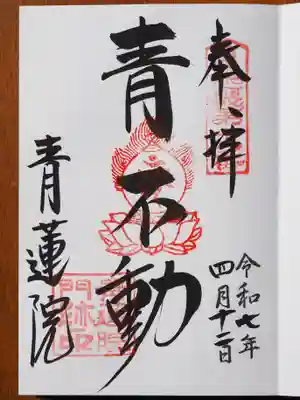 奉拝
令和七年
四月十二日
青不動
青蓮院